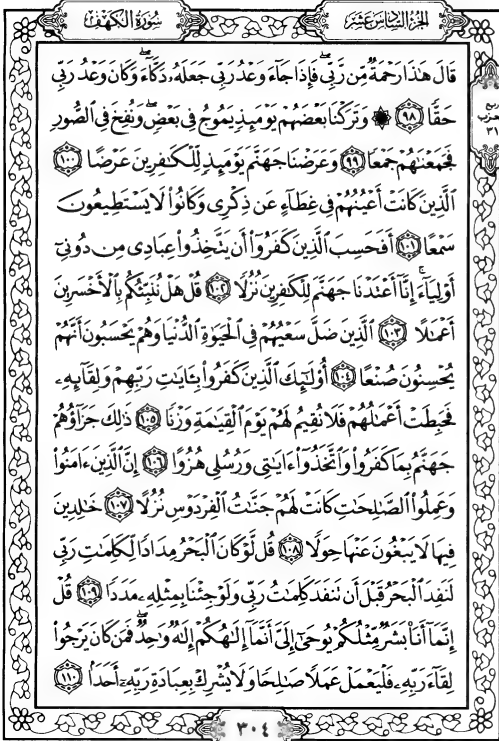 الجزء السادس عشر
سورة الكهف
قَالَ هَٰذَا رَحْمَةٌ مِّن رَّبِّي فَإِذَا جَآءَ وَعْدُ رَبِّي جَعَلَهُۥ دَكَّآءَ وَكَانَ وَعْدُ رَبِّي
حَقًّا ٩٨ ۞ وَتَرَكْنَا بَعْضَهُمْ يَوْمَئِذٍ يَمُوجُ فِي بَعْضٍ وَنُفِخَ فِي ٱلصُّورِ
فَجَمَعْنَٰهُمْ جَمْعًا ٩٩ وَعَرَضْنَا جَهَنَّمَ يَوْمَئِذٍ لِّلْكَٰفِرِينَ عَرْضًا ١٠٠
ٱلَّذِينَ كَانَتْ أَعْيُنُهُمْ فِي غِطَآءٍ عَن ذِكْرِي وَكَانُوا۟ لَا يَسْتَطِيعُونَ
سَمْعًا ١٠١ أَفَحَسِبَ ٱلَّذِينَ كَفَرُوٓا۟ أَن يَتَّخِذُوا۟ عِبَادِي مِن دُونِيٓ
أَوْلِيَآءَ إِنَّآ أَعْتَدْنَا جَهَنَّمَ لِلْكَٰفِرِينَ نُزُلًا ١٠٢ قُلْ هَلْ نُنَبِّئُكُم بِٱلْأَخْسَرِينَ
أَعْمَٰلًا ١٠٣ ٱلَّذِينَ ضَلَّ سَعْيُهُمْ فِي ٱلْحَيَوٰةِ ٱلدُّنْيَا وَهُمْ يَحْسَبُونَ أَنَّهُمْ
يُحْسِنُونَ صُنْعًا ١٠٤ أُو۟لَٰٓئِكَ ٱلَّذِينَ كَفَرُوا۟ بِـَٔايَٰتِ رَبِّهِمْ وَلِقَآئِهِۦ
فَحَبِطَتْ أَعْمَٰلُهُمْ فَلَا نُقِيمُ لَهُمْ يَوْمَ ٱلْقِيَٰمَةِ وَزْنًا ١٠٥ ذَٰلِكَ جَزَآؤُهُمْ
جَهَنَّمُ بِمَا كَفَرُوا۟ وَٱتَّخَذُوٓا۟ ءَايَٰتِي وَرُسُلِي هُزُوًا ١٠٦ إِنَّ ٱلَّذِينَ ءَامَنُوا۟
وَعَمِلُوا۟ ٱلصَّٰلِحَٰتِ كَانَتْ لَهُمْ جَنَّٰتُ ٱلْفِرْدَوْسِ نُزُلًا ١٠٧ خَٰلِدِينَ
فِيهَا لَا يَبْغُونَ عَنْهَا حِوَلًا ١٠٨ قُل لَّوْ كَانَ ٱلْبَحْرُ مِدَادًا لِّكَلِمَٰتِ رَبِّي
لَنَفِدَ ٱلْبَحْرُ قَبْلَ أَن تَنفَدَ كَلِمَٰتُ رَبِّي وَلَوْ جِئْنَا بِمِثْلِهِۦ مَدَدًا ١٠٩ قُلْ
إِنَّمَآ أَنَا۠ بَشَرٌ مِّثْلُكُمْ يُوحَىٰٓ إِلَيَّ أَنَّمَآ إِلَٰهُكُمْ إِلَٰهٌ وَٰحِدٌ فَمَن كَانَ يَرْجُوا۟
لِقَآءَ رَبِّهِۦ فَلْيَعْمَلْ عَمَلًا صَٰلِحًا وَلَا يُشْرِكْ بِعِبَادَةِ رَبِّهِۦٓ أَحَدًۢا ١١٠
٣٠٤